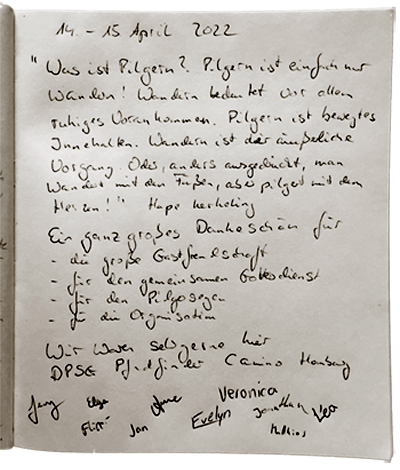 14. - 15 April 2022
"Was ist Pilgern? Pilgern ist einfach nur
Wandern! Wandern bedeutet vor allem
ruhiges Vorankommen. Pilgern ist bewegtes
Innehalten. Wandern ist der äußerliche
Vorgang. Oder, anders ausgedrückt, man
wandert mit den Füßen, aber pilgert mit dem
Herzen!" Hape Kerkeling
Ein ganz großes Dankeschön für
- die große Gastfreundschaft
- für den gemeinsamen Gottesdienst
- für den Pilgersegen
- für die Organisation
Wir waren sehr gerne hier
DPSG Pfadfinder Camino Homburg
Jan
Evelyn
Veronica
Jonathan
Leo